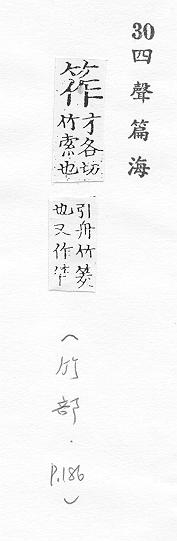 30
四聲篇海
筰
才各切
竹索也
引舟竹筊
也又作笮
(竹部.
P.186)